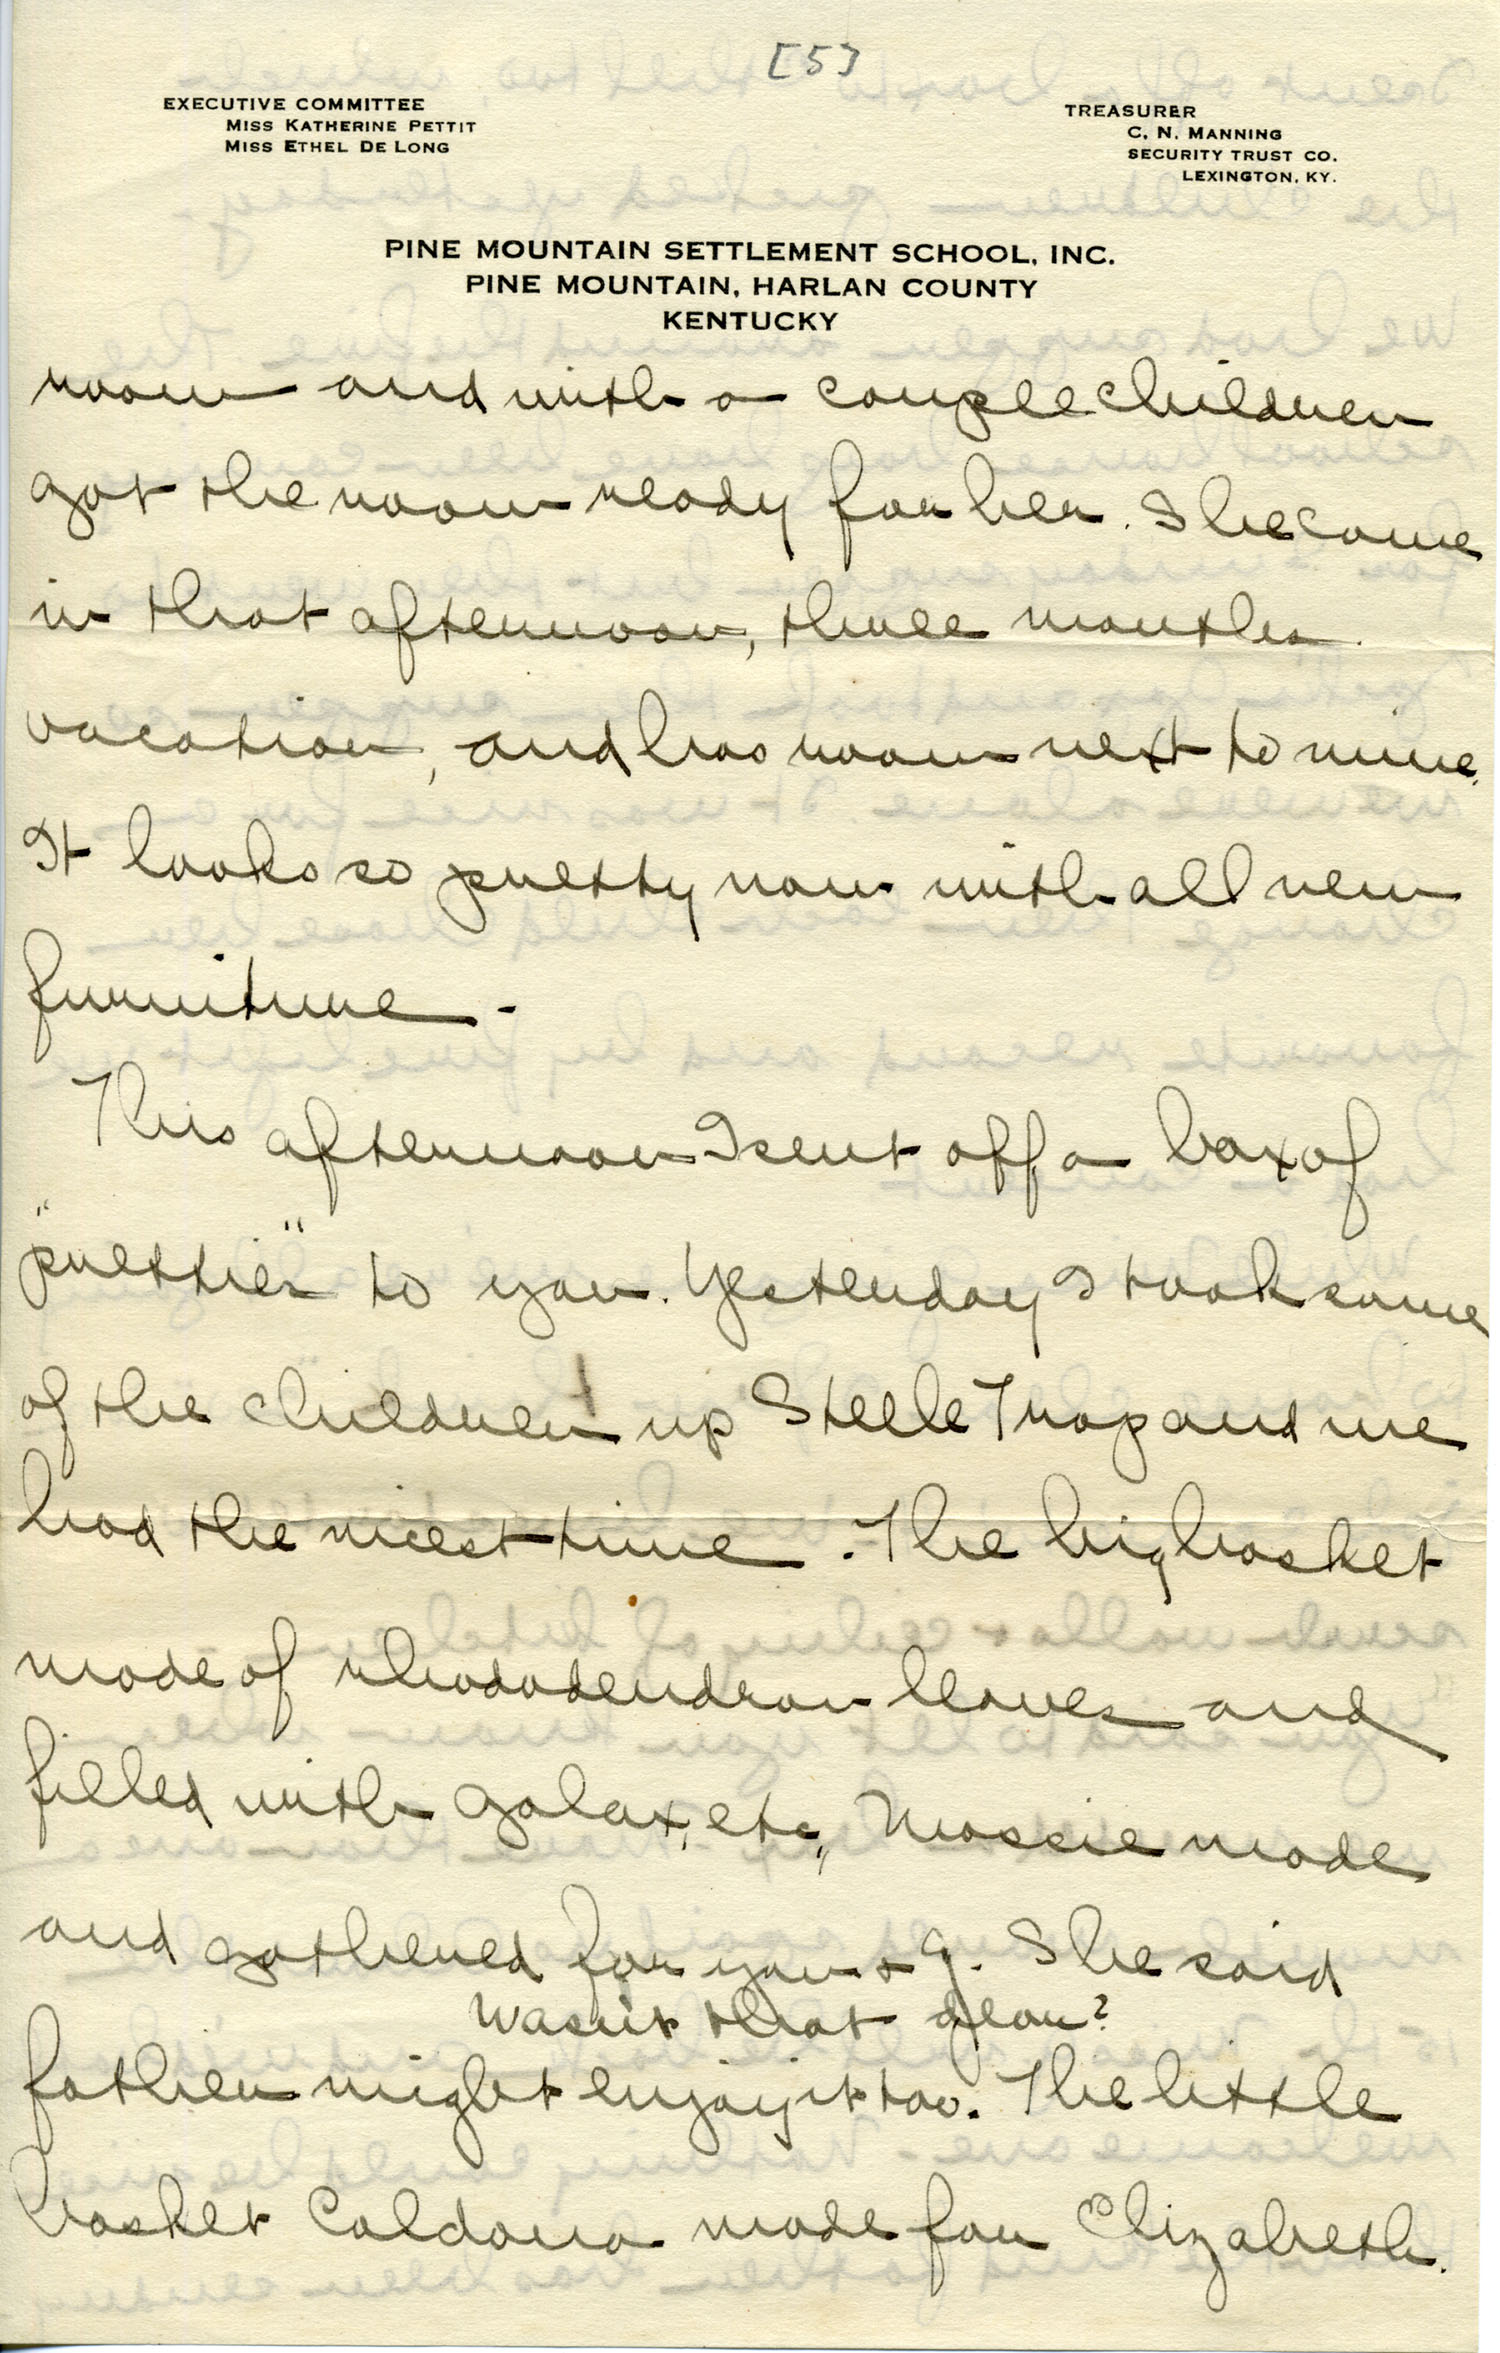 [5]
EXECUTIVE COMMITTEE
MISS KATHERINE PETTIT
MISS ETHEL DE LONG
TREASURER
C. N. MANNING
SECURITY TRUST CO.
LEXINGTON, KY.
PINE MOUNTAIN SETTLEMENT SCHOOL, INC.
PINE MOUNTAIN, HARLAN COUNTY
KENTUCKY
room and with a couple children
got the room ready for her. She came
in that afternoon, three months
vacation, and has room next to mine.
It looks so pretty now with all new
furniture -
This afternoon I sent off a box of
"pretties" to you. Yesterday I took some
of the children up Steele Trap and we
had the nicest time. The big basket
made of rhododendron leaves and
filled with galax, etc., Massie made
and gathered for you & G. She said
Wasn't that dear?
father might enjoy it too. The little
basket Caldona made for Elizabeth.